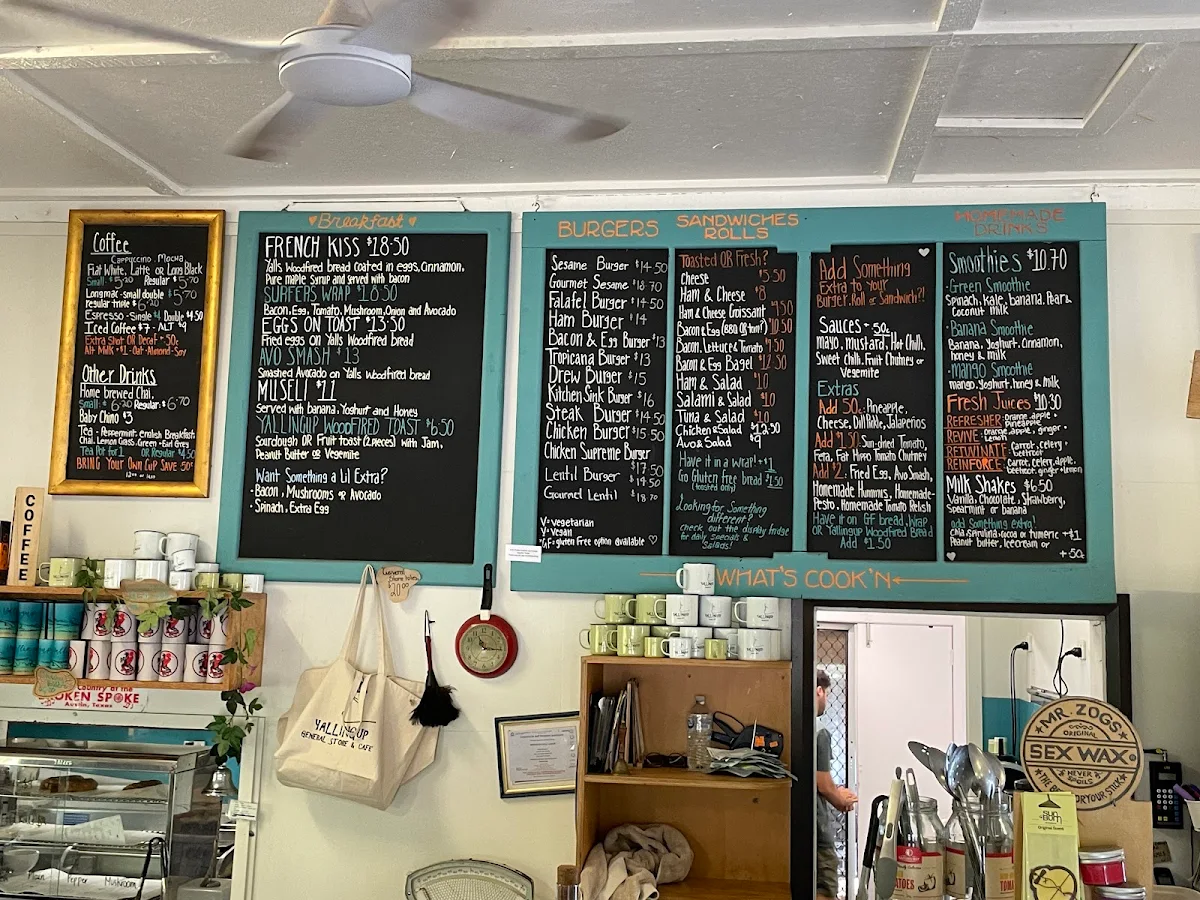 Coffee
Cappuccino. Mocha
Flat White, Latte or Long Black
Small: $5.20 Regular $5.70
Long mac - small double $5.70
regular triple $6.20
Espresso - Single $4 Double $4.50
Iced Coffee $7 - ALT $9
Extra Shot OR Decaf + 50c
Alt Milk + $1 - Oat - Almond - Soy
Other Drinks
Home brewed Chai.
Small: $6.20 Regular: $6.70
Baby Chino $3
Tea - Peppermint, english Breakfast
Chai, Lemon Grass, Green + Earl Grey
Tea Pot for 1 OR Regular $4.50
BRING Your Own Cup SAVE 50c
Breakfast
FRENCH KISS $18.50
Yalls WoodFired bread coated in eggs, Cinnamon,
Pure maple Syrup and served with bacon
SURFERS WRAP $18.50
Bacon, Egg, Tomato, Mushroom, Onion and Avocado
EGGS ON TOAST $13.50
Fried eggs on Yalls Woodfired bread
AVO SMASH $13
Smashed Avocado on Yalls Woodfired bread
MUSELI $11
Served with banana, Yoghurt and Honey
YALLINGUP WOODFIRED TOAST $6.50
Sourdough OR Fruit toast (2 pieces) with Jam,
Peanut Butter or Vegemite
Want Something a Lil Extra?
• Bacon, Mushrooms or Avocado
• Spinach, Extra Egg
BURGERS
Sesame Burger $14.50
Gourmet Sesame $18.70
Falafel Burger $14.50
Ham Burger $14
Bacon & Egg Burger $13
Tropicana Burger $13
Drew Burger $15
Kitchen Sink Burger $16
Steak Burger $14.50
Chicken Burger $15.50
Chicken Supreme Burger
$17.50
Lentil Burger $14.50
Gourmet Lentil $18.70
V = vegetarian
V = Vegan
GF = gluten Free option available
SANDWICHES
ROLLS
Toasted OR Fresh?
Cheese $5.50
Ham & Cheese $8
Ham & Cheese Croissant $9.50
Bacon & Egg (BBQ OR tom?) $10.50
Bacon, Lettuce & Tomato $9.50
Bacon & Egg Bagel $12.50
Ham & Salad $10
Salami & Salad $10
Tuna & Salad $10
Chicken & Salad $12.50
Avo & Salad $9
Have it in a wrap! + $1
Go Gluten free bread $1.50
(toasted only)
Looking for Something
different?
Check out the display fridge
for daily specials &
Salads!
Add Something
Extra to Your
Burger, Roll or Sandwich?!
Sauces + 50c
mayo, mustard, Hot Chili,
Sweet chili, Fruit Chutney or
Vegemite
Extras
Add 50c: Pineapple,
Cheese, Dill Pickle, Jalapeños
Add $1.50: Sun-dried Tomato,
Feta, Fat Hippo Tomato Chutney
Add $2: Fried Egg, Avo Smash,
Homemade Hummus, Homemade
Pesto, Homemade Tomato Relish
Have it on GF bread, Wrap
OR Yallingup Woodfired Bread
Add $1.50
HOMEMADE
DRINKS
Smoothies $10.70
• Green Smoothie
Spinach, Kale, banana, Pear &
Coconut milk
• Banana Smoothie
Banana, Yoghurt, Cinnamon,
honey & milk
• Mango Smoothie
mango, Yoghurt, honey & milk
Fresh Juices $10.30
REFRESHER: Orange, apple +
Pineapple
REVIVE: Orange, apple, ginger +
Lemon
REJUVINATE: Carrot, celery +
beetroot
REINFORCE: Carrot, celery, apple,
beetroot, ginger + lemon
Milk Shakes $6.50
Vanilla, Chocolate, Strawberry,
Spearmint or banana
add Something extra!
Chia, Spirulina, cocoa or tumeric + $1
Peanut butter, Icecream or
+ 50c
WHAT'S COOK'N
COFFEE
General Store totes
$20.00
YALLINGUP
GENERAL STORE & CAFE
Country at the
BROKEN SPOKE
Austin, Texas
Plain Pepper Mushroom
MR. ZOGS
ORIGINAL
SEX WAX
NEVER SPOILS
THE BEST FOR YOUR STICK
sun
Bum
Original Scent